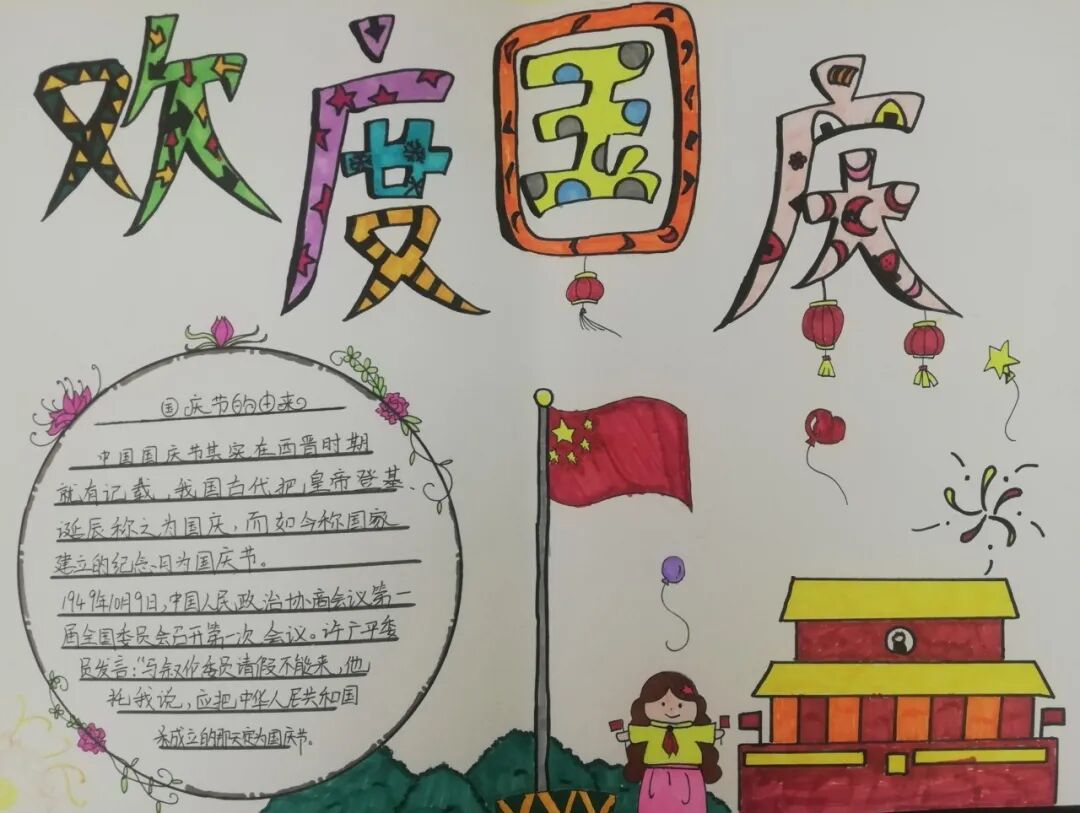 欢度国庆
国庆节的由来
中国国庆节其实在西晋时期
就有记载,我国古代把皇帝登基、
诞辰称之为国庆,而如今称国家
建立的纪念日为国庆节。
1949年10月9日,中国人民政治协商会议第一
届全国委员会召开第一次会议。许广平委
员发言:“马叙伦委员请假不能来,他
托我说,应把中华人民共和国
成立的那天定为国庆节。